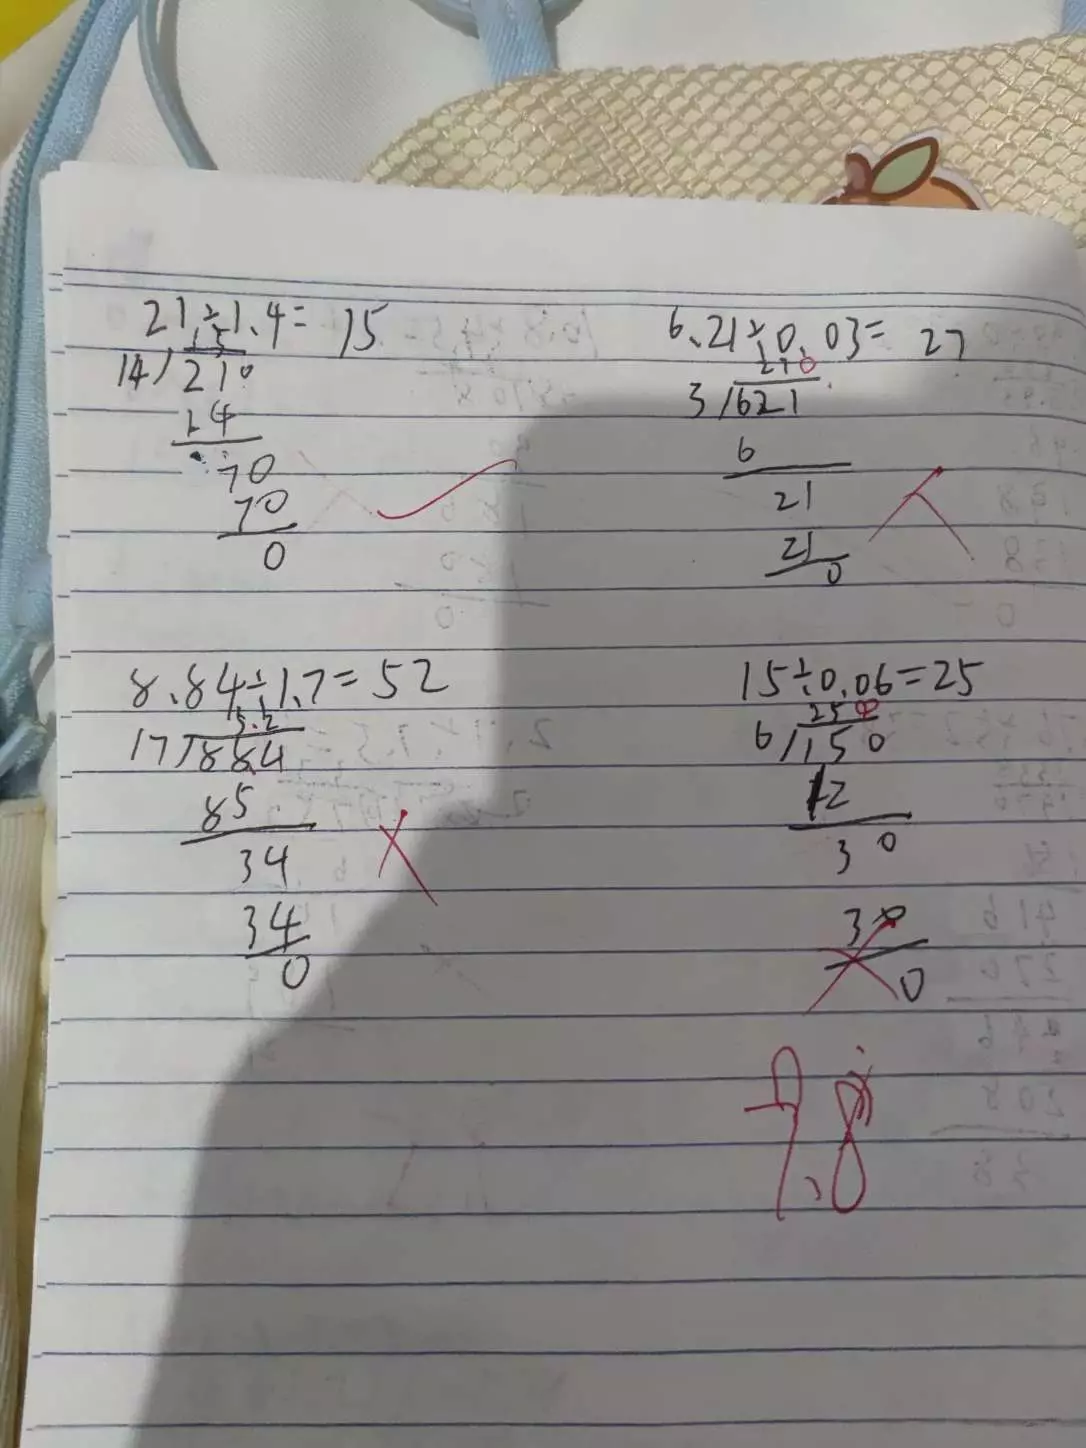 21÷1.4=15
15
14/210
14
70
70
0
6.21÷0.03=27
270
3/621
6
21
21
0
8.84÷1.7=52
5.2
17/88.4
85
34
34
0
15÷0.06=25
250
6/150
12
30
30
0
7.8